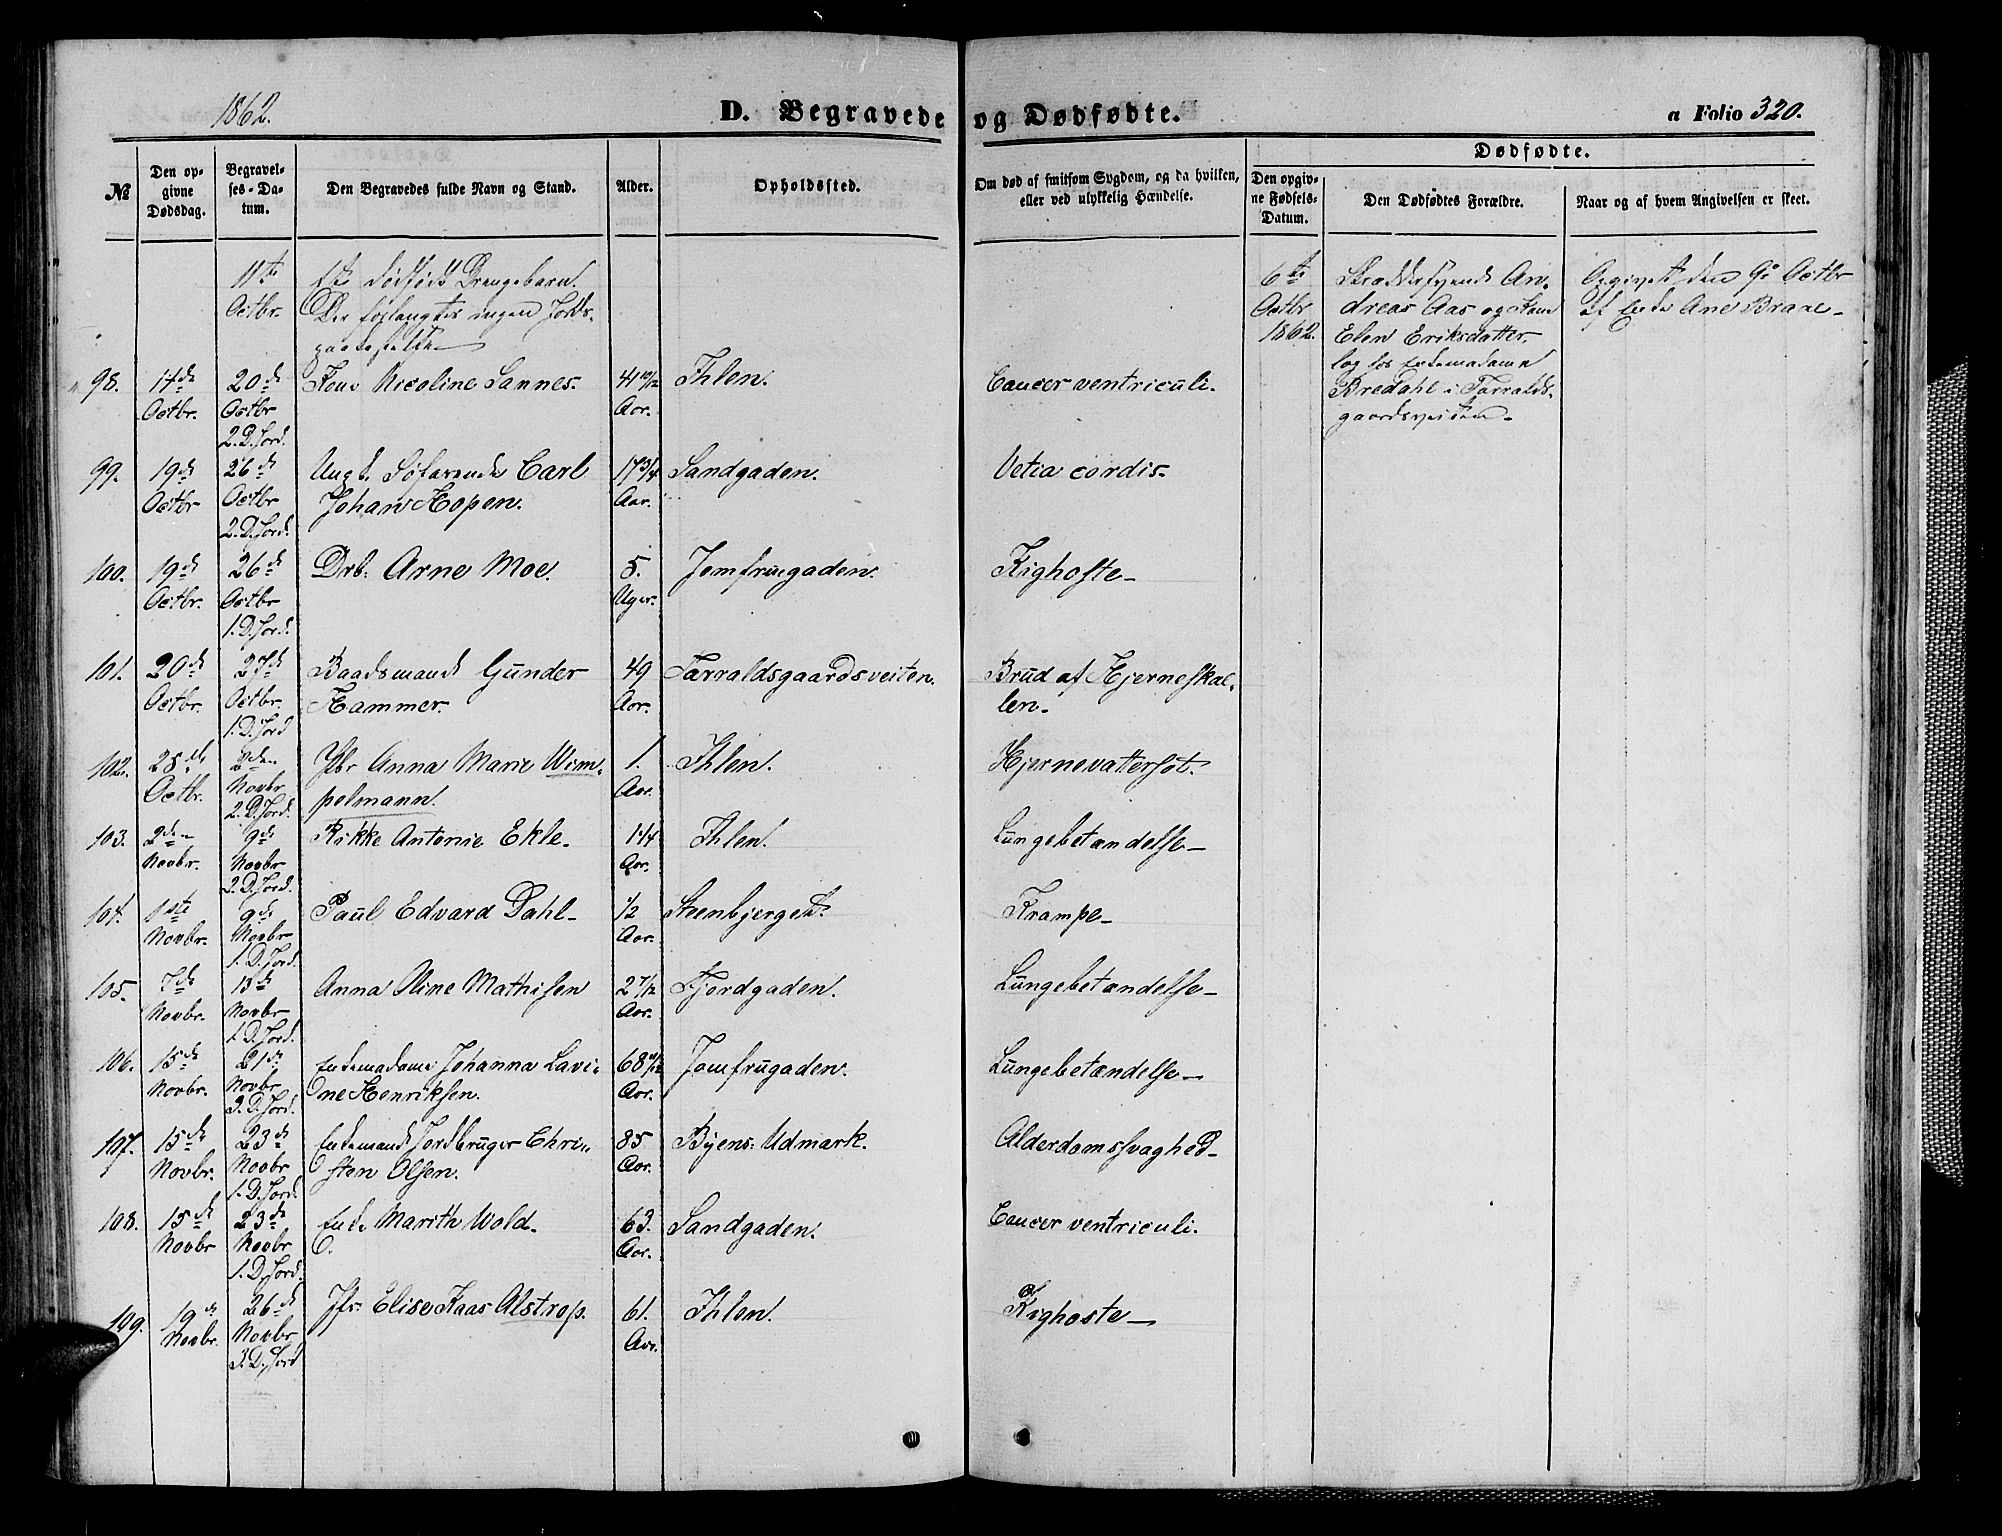 1862.
D. Begravede og Dødfødte.
a Folio 320.
№
Den opgivne Dødsdag.
Begravelses-Datum.
Den Begravedes fulde Navn og Stand.
Alder.
Opholdssted.
Om død af smitsom Sygdom, og da hvilken, eller ved ulykkelig Hændelse.
Dødfødte.
Den opgivne Fødsels-Datum.
Den Dødfødtes Forældre.
Naar og af hvem Angivelsen er skeet.
11te Octbr. Et dødfødt Drengebarn.
Der forlangtes ingen Jords-
paakastelse
6te Octbr 1862.
Skræddersvend An-
dreas Aas og Kone
Elen Eriksdatter,
log. hos Enkemadame
Bredahl i Tarralds-
gaardsveiten.
Opgivet den 9de Octbr
af Enke Ane Braae.
98. 17de Octbr. 20de Octbr 2.D.Jord. Kone Nicoline Sannes. 41 10/12 Aar. Ihlen. Cancer ventriculi.
99. 19de Octbr 26de Octbr 2.D.Jord. Ungk. Søfarende Carl
Johan Hopen. 17 3/4 Aar. Sandgaden. Vetia cordis.
100. 19de Octbr. 26de Octbr 1.D.Jord. Drb. Arne Moe. 5. Uger. Jomfruegaden. Kighoste
101. 20de Octbr. 27de Octbr. 1.D.Jord Baadsmand Gunder
Hammer. 49 Aar. Tarraldsgaardsveiten. Brud af Hjerneskal-
len.
102. 28de Octbr. 2den Novbr 2.D.Jord. Pbr Anna Marie Wim-
pelmann. 1. Aar. Ihlen. Hjernevattersot.
103. 2den Novbr. 9de Novbr 2.D.Jord. Rikke Antonie Ekle. 1 1/4 Aar. Ihlen. Lungebetændelse
104. 1ste Novbr. 9de Novbr 1.D.Jord. Paul Edvard Dahl 1/2 Aar. Steenbjerget. Krampe
105. 7de Novbr. 13de Novbr 1.D.Jord. Anna Oline Mathisen 2 7/12 Aar. Fjordgaden. Lungebetændelse
106. 15de Novbr. 21de Novbr 3.D.Jord. Enkemadame Johanna Lavi-
ne Henriksen. 68 Aar. Jomfrugaden. Lungebetændelse
107. 15de Novbr. 23de Novbr 1.D.Jord. Enkemand Jordbruger Chri-
sten Olsen. 85 Aar. Byens Udmark. Alderdomssvaghed
108. 15de Novbr 23de Novbr 1.D.Jord. Enke Marith Wold. 63. Aar. Sandgaden. Cancer ventriculi.
109. 19de Novbr. 26de Novbr 3.D.Jord Jfr. Elise Kaas Alstrop. 61. Aar. Ihlen. Kighoste